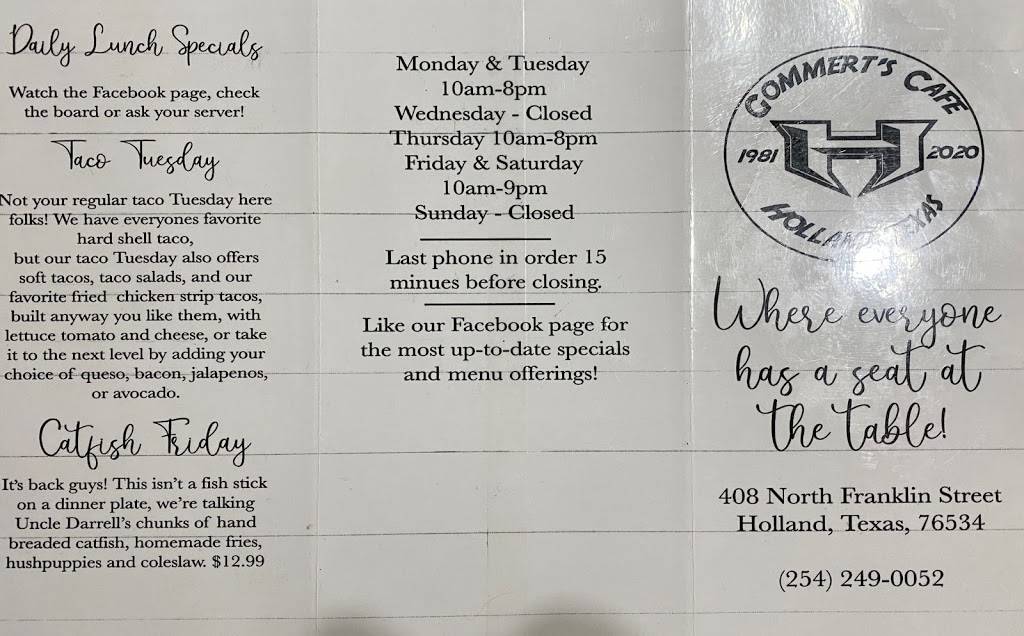 Daily Lunch Specials
Watch the Facebook page, check
the board or ask your server!
Taco Tuesday
Not your regular taco Tuesday here
folks! We have everyones favorite
hard shell taco,
but our taco Tuesday also offers
soft tacos, taco salads, and our
favorite fried chicken strip tacos,
built anyway you like them, with
lettuce tomato and cheese, or take
it to the next level by adding your
choice of queso, bacon, jalapenos,
or avocado.
Catfish Friday
It's back guys! This isn't a fish stick
on a dinner plate, we're talking
Uncle Darrell's chunks of hand
breaded catfish, homemade fries,
hushpuppies and coleslaw. $12.99
Monday & Tuesday
10am-8pm
Wednesday - Closed
Thursday 10am-8pm
Friday & Saturday
10am-9pm
Sunday - Closed
Last phone in order 15
minues before closing.
Like our Facebook page for
the most up-to-date specials
and menu offerings!
GOMMERT'S CAFE
1981 H 2020
HOLLAND, TEXAS
Where everyone
has a seat at
the table!
408 North Franklin Street
Holland, Texas, 76534
(254) 249-0052